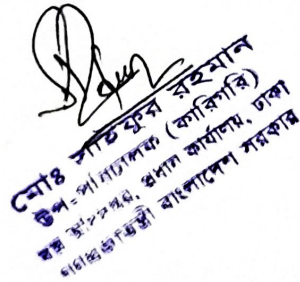 মোঃ রহমান
উপ-পরিচালক (কারিগরি)
বস্ত্র অধিদপ্তর, প্রধান কার্যালয়, ঢাকা
গণপ্রজাতন্ত্রী বাংলাদেশ সরকার